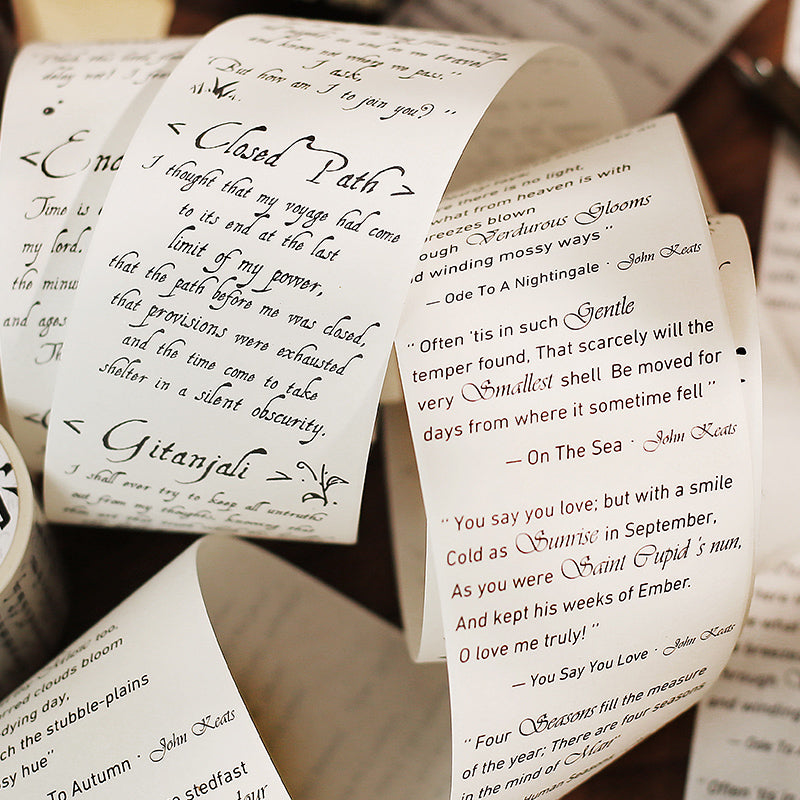 and know not where we pass."
I ask,
"But how am I to join you?"
< Closed Path >
I thought that my voyage had come
to its end at the last
limit of my power,
that the path before me was closed,
that provisions were exhausted
and the time come to take
shelter in a silent obscurity.
< Gitanjali >
I shall ever try to keep all untruths
out from my thoughts, knowing that
Time is
my lord.
the minu
and ages
Th
there is no light,
what from heaven is with
breezes blown
ough Verdurous Glooms
d winding mossy ways "
— Ode To A Nightingale · John Keats
" Often 'tis in such Gentle
temper found, That scarcely will the
very Smallest shell Be moved for
days from where it sometime fell "
— On The Sea · John Keats
" You say you love; but with a smile
Cold as Sunrise in September,
As you were Saint Cupid 's nun,
And kept his weeks of Ember.
O love me truly! "
— You Say You Love · John Keats
" Four Seasons fill the measure
of the year; There are four seasons
in the mind of Man"
Human Seasons
too,
rred clouds bloom
dying day,
ch the stubble-plains
sy hue"
To Autumn · John Keats
stedfast